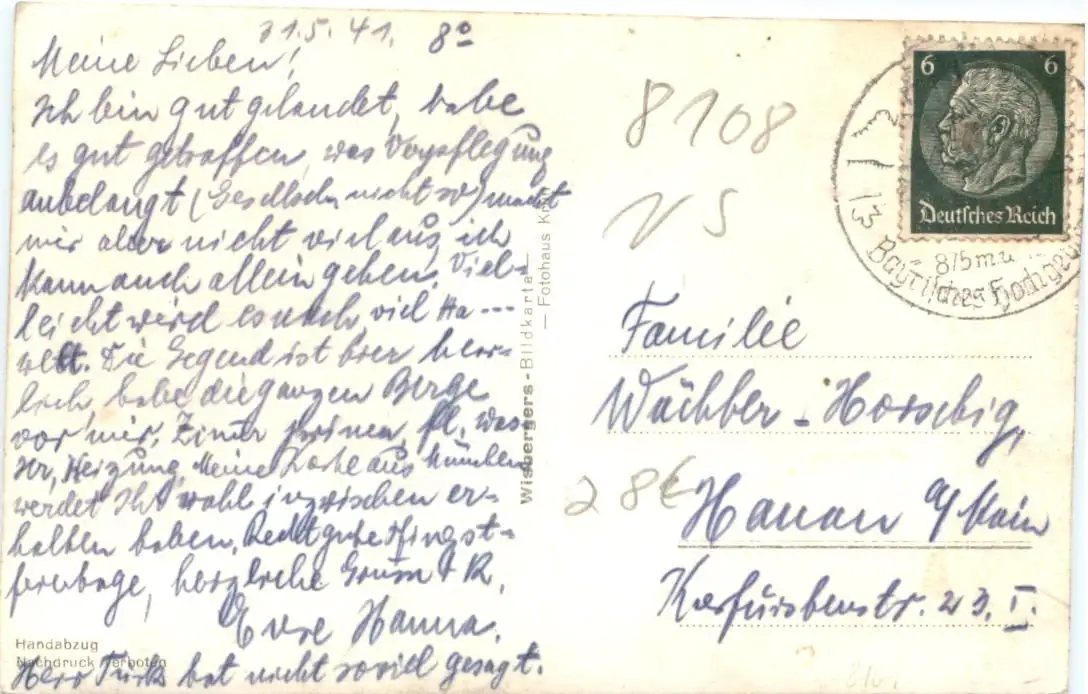 31.5.41. 8°
Meine Lieben!
Ich bin gut gelandet, habe
es gut getroffen, was Verpflegung
anbelangt (Gesellsch. nicht so) macht
mir aber nicht viel aus, ich
kann auch allein gehen. Viel-
leicht wird es noch, viel
Die Gegend ist hier herr-
lich, habe die ganzen Berge
vor mir. Zimer prima, fl. Was-
ser, Heizung, Meine Karte aus München
werdet Ihr wohl inzwischen er-
halten haben, Recht gute Pfingst-
feiertage, herzliche Grüsse & K,
Eure Hanna.
Herr Türk hat nicht soviel gesagt.
Handabzug
Nachdruck verboten
Wisbergers-Bildkarte
— Fotohaus
8108
VS
28€
6 6
Deutsches Reich
Bayrisches Hochgeb
Familie
Wächter-Horschig,
Hanau a/Main
23. I.